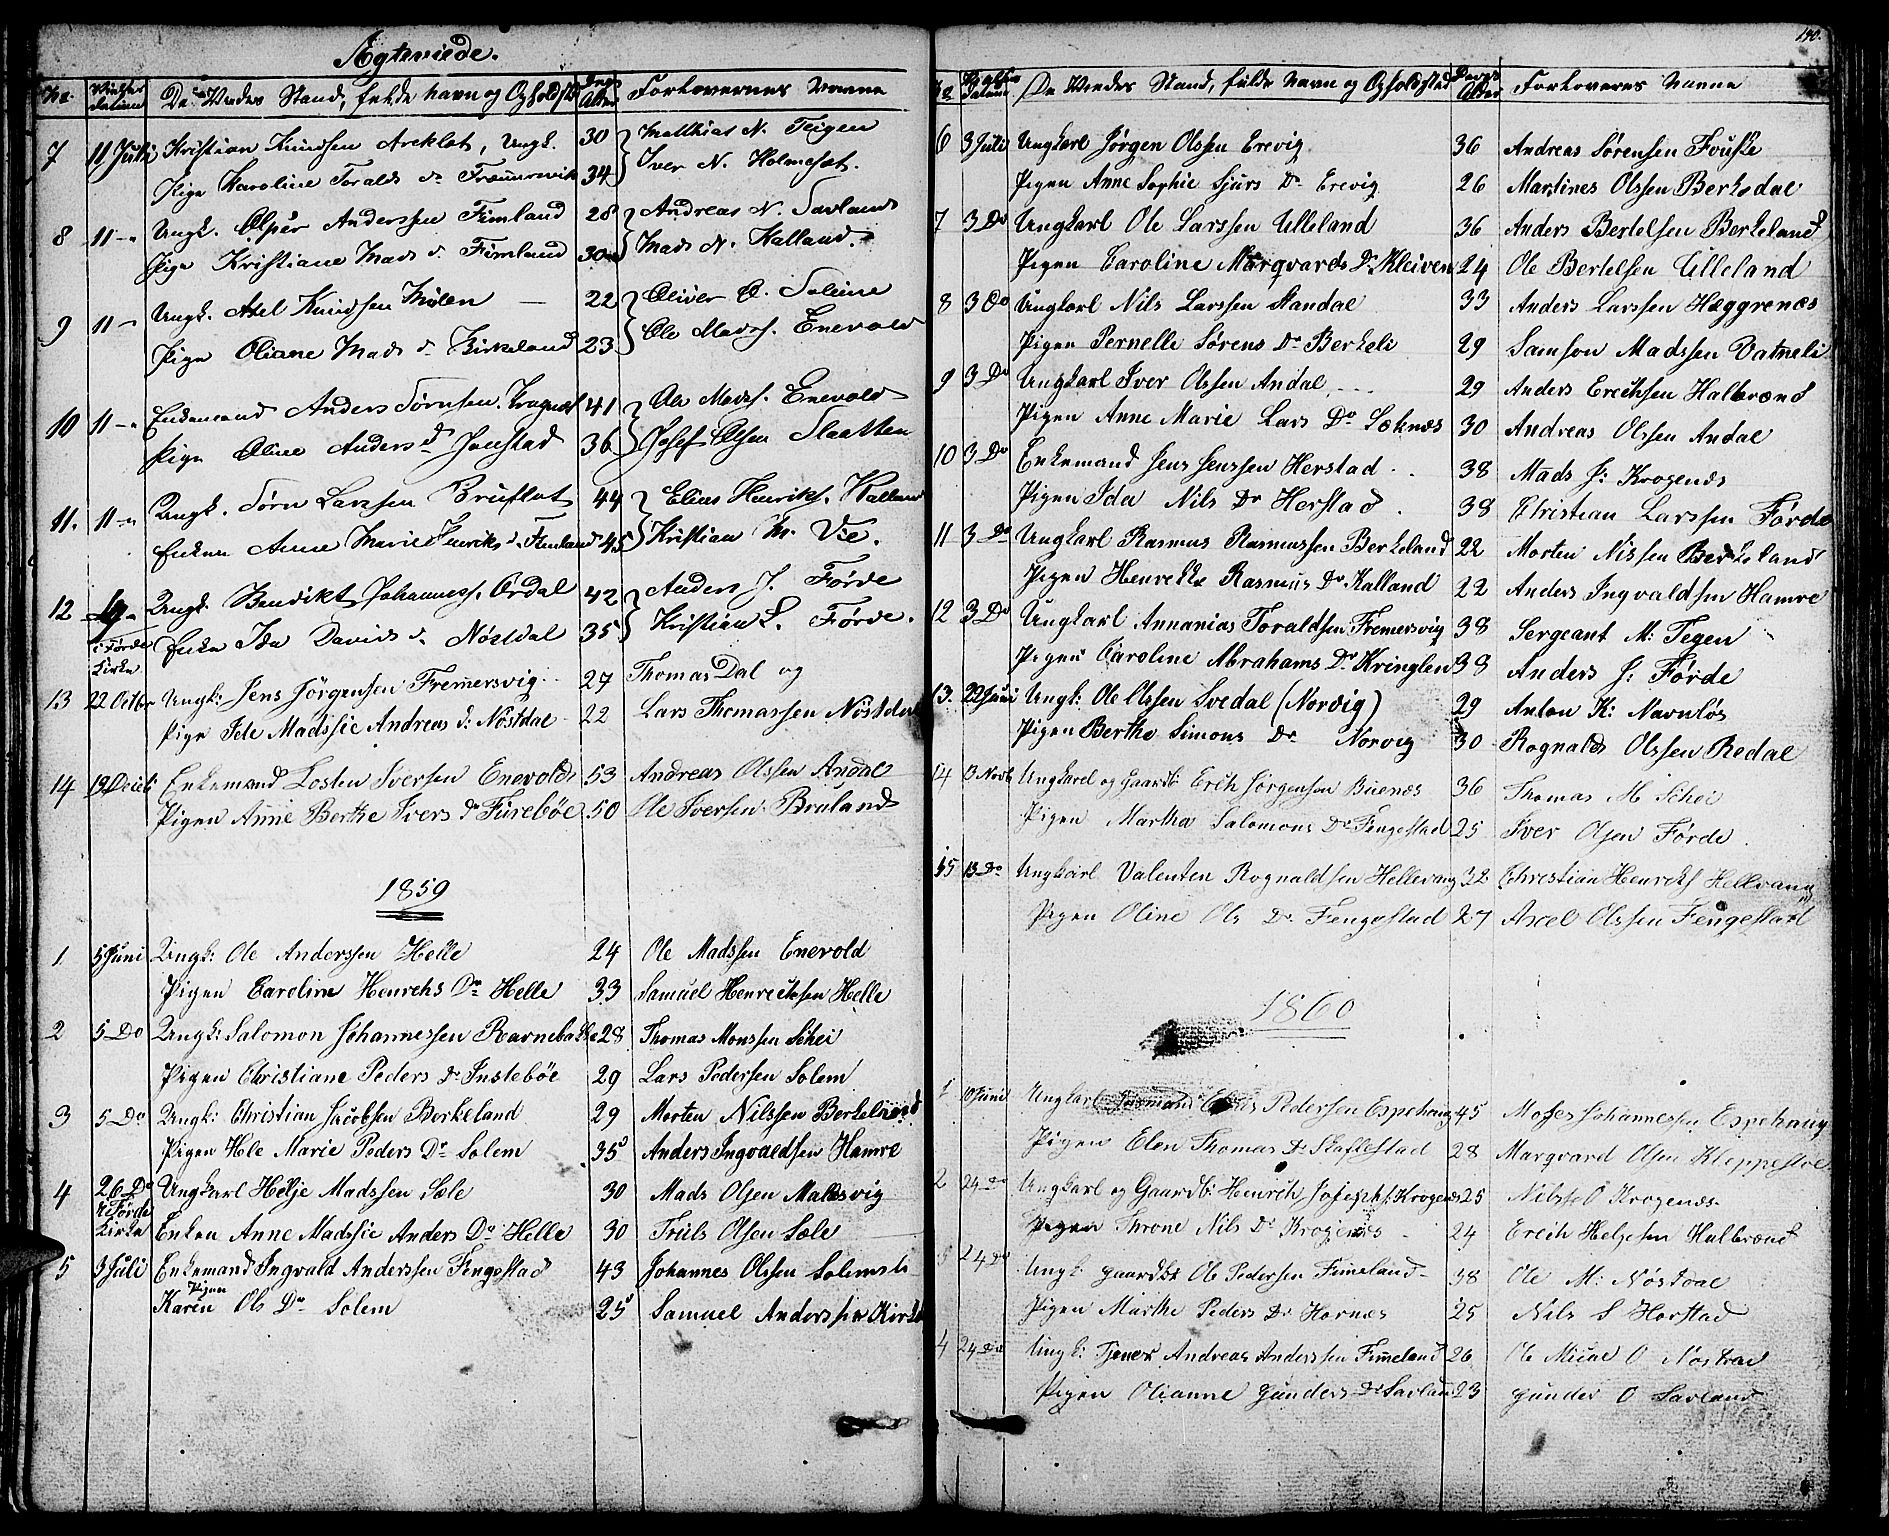 Ægteviede.
No. Vielses datum De Viedes Stand, fulde Navn og Opholdsst. Deres Alder Forlovernes Navne
7 11 Juli Kristian Knudsen Areklet, Ungk. 30 Matthias N. Teigen
Pige Karoline Toralds d. Fræmmersvik 34 Iver N. Holmeset.
8 11 Ungk. Andersen Fimland 28 Andreas N. Savland
Pige Kristiane Mads d. Fimland 30 Mads N. Halland.
9 11 Ungk. Axel Knudsen Molen 22 Oliver O. Soleine
Pige Oliane Mads d. Birkeland 23 Ole Madss. Enevold
10 11 Enkemand Anders Sørnsen 41 Ole Madss. Enevold
Pige Oline Anders d. Jonstad 36 Josef Olsen Slaatten
11. 11 Ungk. Sørn Larssen Bruflot 44 Elias Henriks. Kalland
Enken Anne Marie Henriks d. Fimland 45 Kristian M. Vie.
12 Ungk. Bendikt Johanness. Ordal 42 Anders J. Førde
i Førde Kirke Enke Ida Davids d. Nøstdal 35 Kristian L. Førde.
13 22 Octbr Ungk: Jens Jörgensen Fremersvig 27 Thomas Dal og
Pige Ide Madssie Andreas d: Nöstdal 22 Lars Thomassen Nöstdal
14 Decbr Enkemand Losten Iversen Enevold 53 Andreas Olssen Andal
Pigen Anne Berthe Ivers Dr Furebøe 50 Ole Iversen Bruland
1859
1 5 Juni Ungk: Ole Anderssen Helle 24 Ole Madssen Enevold
Pigen Caroline Henrichs Dr Helle 33 Samuel Henrecksen Helle
2 5 Do Ungk: Salomon Johannessen Ravnebakke 28 Thomas Monssen Schei
Pigen Christiane Peders Dr Instebøe 29 Lars Pedersen Solem
3 5 Do Ungk: Christian Jacobsen Berkeland 29 Morten Nilssen Berkeland
Pigen Hele Marie Peders Dr Solem 35 Anders Ingvaldsen Hamre
4 26 Do Ungkarl Helje Madssen Sæle 30 Mads Olsen Malesvig
i Førde Kirke Enken Anne Madssie Anders Dr Helle 30 Truls Olsen Sæle
5 3 Juli Enkemand Ingvald Anderssen Fengestad 43 Johannes Olssen Solem
Pigen Karen Ols Dr Solem 25 Samuel Anderssen
140.
No Datum De Viedes Stand, fulde Navn og Opholdsted Deres Alder Forloveres Navne
6 3 Juli Ungkarl Jørgen Olssen Erevig 36 Andreas Sørensen Fouske
Pigen Anne Sophie Sjurs Dr Erevig 26 Martines Olssen Berkedal
7 3 Do Ungkarl Ole Larssen Ulleland 36 Anders Bertelsen Berkeland
Pigen Caroline Marqvards Dr Kleiven 24 Ole Bertelsen Ulleland
8 3 Do Ungkarl Nils Larssen Standal 33 Anders Larssen Heggrenæs
Pigen Pernelle Sørens Dr Berkeli 29 Samson Madssen Vatneli
9 3 Do Ungkarl Iver Olssen Andal 29 Anders Erecksen Halbrænd
Pigen Anne Marie Lars Dr Sæknæs 30 Andreas Olssen Andal
10 3 Do Enkemand Jens Jenssen Herstad 38 Mads J: Krogenæs
Pigen Ida Nils Dr Herstad 38 Christian Larssen Førde
11 3 Do Ungkarl Rasmus Rasmussen Berkeland 22 Morten Nilssen Berkeland
Pigen Henrekke Rasmus Dr Kalland 22 Anders Ingvaldsen Hamre
12 3 Do Ungkarl Annanias Toraldsen Fremersvig 38 Sergeant M: Tegen
Pigen Caroline Abrahams Dr Kringlen 38 Anders J: Førde
13. 22 Juni Ungk: Ole Olssen Svedal (Norvig) 29 Anton K: Navnløs
Pigen Berthe Simons Dr Norvig 30 Rognald Olssen Redal
14 13 Novb Ungkarel og Gaardb: Erich Jørgensen Buenæs 36 Thomas M Schei
Pigen Martha Salomons Dr Fengestad 25 Iver Olsen Førde.
15 13 Do Ungkarl Valenten Rognaldsen Hellevang 32 Christian Henriks Hellevang
Pigen Oline Ols Dr Fengestad 27 Axel Olssen Fengestad
1860
1 10 Juni Ungkarl Pedersen Espehaug 45 Moses Johannessen Espehaug
Pigen Elen Thomas Dr Skaflestad 28 Marqvard Olsen Kleppestøl
2 24 Do Ungkarl og Gaardb: Henrich Josephs Krogenæs 25 Nils O Krogenæs
Pigen Throne Nils Dr Krogenæs 24 Erich Heljesen Halbrænd
3 24 Do Ungk: Gaardbr Ole Pedersen Fimeland 38 Ole M: Nøstdal
Pigen Marthe Peders Dr Hornæs 25 Nils S Horstad
4 24 Do Ungk: Tjener Andreas Anderssen Fimeland 26 Ole Nøstdal
Pigen Olianne Gunders Dr Savland 23 Gunder O Savland